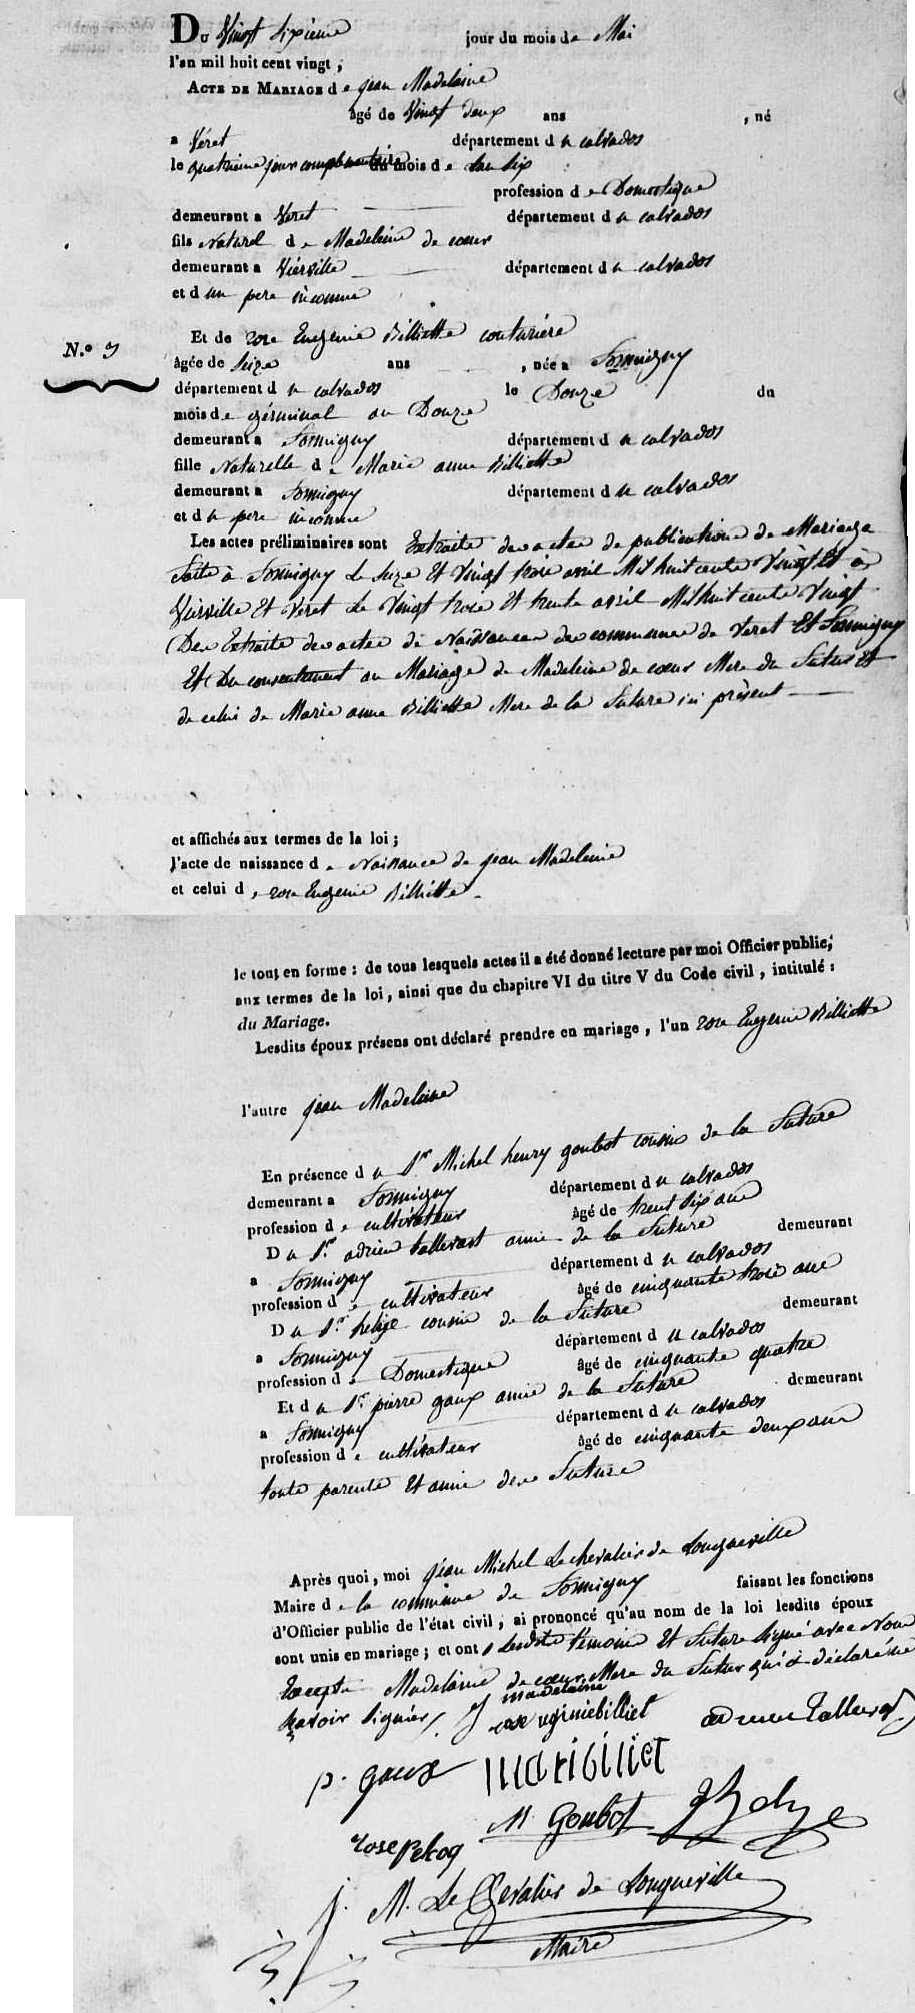 Du Vingt Sixieme jour du mois de Mai
l'an mil huit cent vingt ;
ACTE DE MARIAGE de jean Madelaine
âgé de Vingt deux ans , né
a Véret département du calvados
le quatrieme jour complementaire du mois de lan six
profession de Domestique
demeurant a Veret département du calvados
fils Naturel de Madeleine de coeur
demeurant a Viérville département du calvados
et d un pere inconnu
N.º 3
Et de rose Eugenie Billiette couturiére
âgée de Seize ans , née a Formigny
département du calvados le Douze du
mois de gérminal an Douze
demeurant a Formigny département du calvados
fille Naturelle de Marie anne Billiette
demeurant a Formigny département du calvados
et du pere inconnu
Les actes préliminaires sont Extraits des actes de publications de Mariage
faite à Formigny Le Seize Et Vingt trois avril Mil huit cents Vingt Et à
Vierville Et Veret Le Vingt trois Et trente avril Mil huit cents Vingt
Des Extraits des actes de Naissances des communes de Veret Et Formigny
Et Du consentement au Mariage de Madeleine de coeur Mere du Futur Et
de celui de Marie anne Billiette Mere de la Future ici présent
et affichés aux termes de la loi ;
l'acte de naissance de Naissance de jean Madeleine
et celui de rose Eugenie Billiette
le tout en forme : de tous lesquels actes il a été donné lecture par moi Officier public,
aux termes de la loi, ainsi que du chapitre VI du titre V du Code civil, intitulé :
du Mariage.
Lesdits époux présens ont déclaré prendre en mariage, l'un rose Eugenie Billiette
l'autre jean Madelaine
En présence du Sr Michel henry goubot cousin de la Future
demeurant a Formigny département du calvados
profession de cultivateur âgé de trent six ans
Du Sr adrien tallevast amie de la Future demeurant
a Formigny département du calvados
profession de cultivateur âgé de cinquante trois ans
Du Sr helize cousin de la Future demeurant
a Formigny département du calvados
profession de Domestique âgé de cinquante quatre
Et du Sr pierre gaux amie de la Future demeurant
a Formigny département du calvados
profession de cultivateur âgé de cinquante deux ans
touts parents Et amie des Future
Après quoi, moi jean Michel Le chevalier de Longueville
Maire de la commune de Formigny faisant les fonctions
d'Officier public de l'état civil, ai prononcé qu'au nom de la loi lesdits époux
sont unis en mariage ; et ont Lesdits témoins Et Future Signé avec Nous
Excepte Madelaine de coeur Mere du Futur qui a déclaré ne
Savoir Signier. J madelaine
rose ugenie billiet
p. gaux maribilliet
M. Goubot
rose
M. Le Chevalier de Longueville
Maire